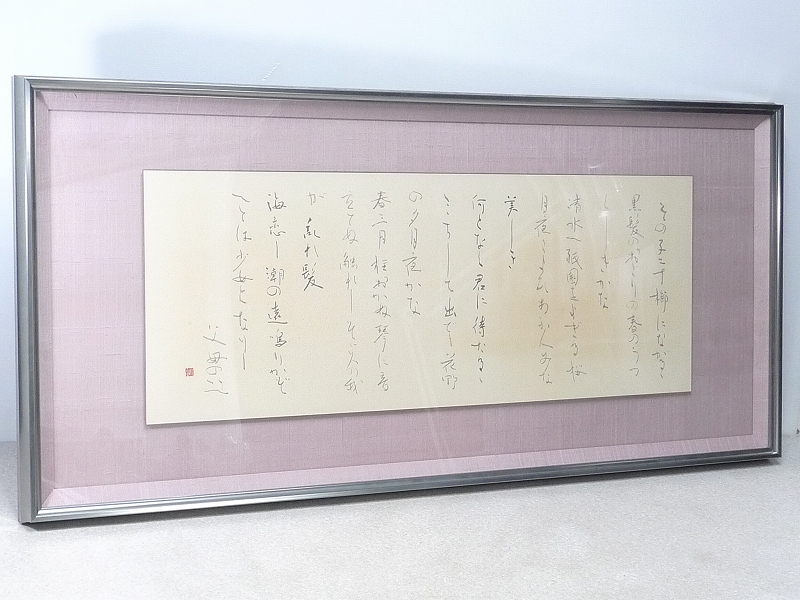 その子二十櫛にながるゝ
黒髪のおごりの春のうつ
くしきかな
清水へ祇園をよぎる桜
月夜こよひあふ人みな
美しき
何となく君に待たるゝ
こゝちして出でし花野
の夕月夜かな
春三月柱おかぬ琴に音
立てぬ触れしそゞろの我
が乱れ髪
海恋し潮の遠鳴りかぞ
へては少女となりし
父母の